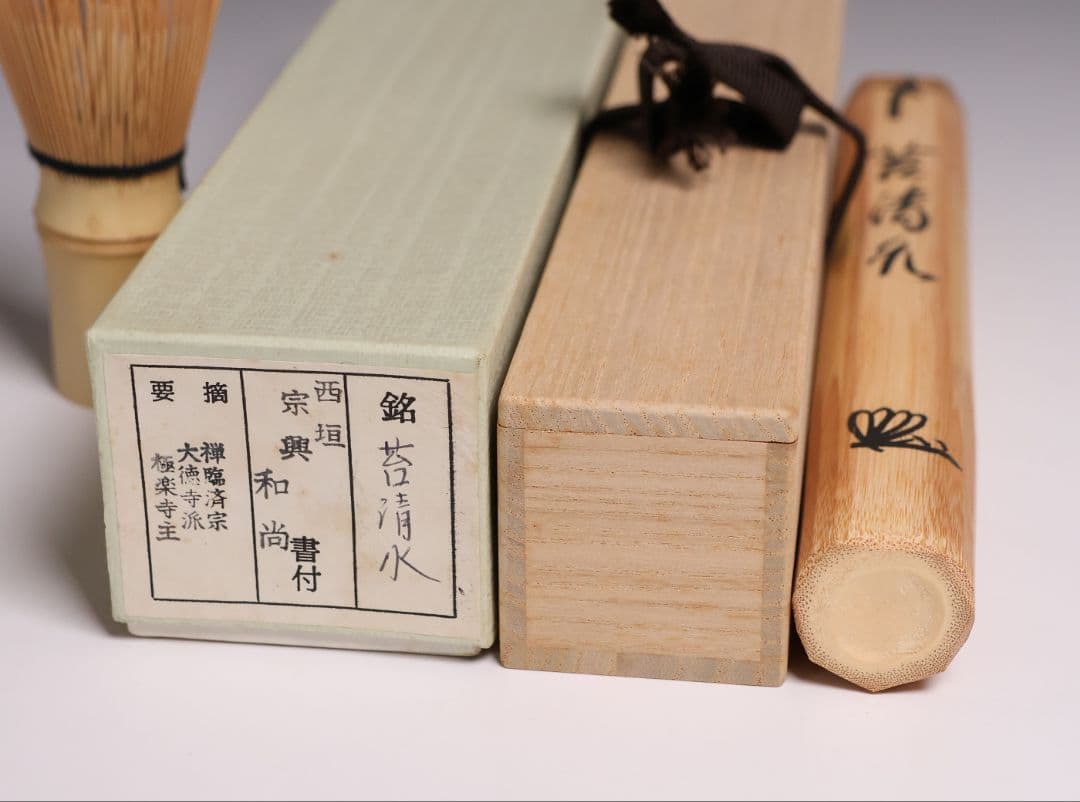 銘 苔清水
西垣
宗興
和尚
書付
摘要
禅臨済宗
大徳寺派
極楽寺主
苔清水